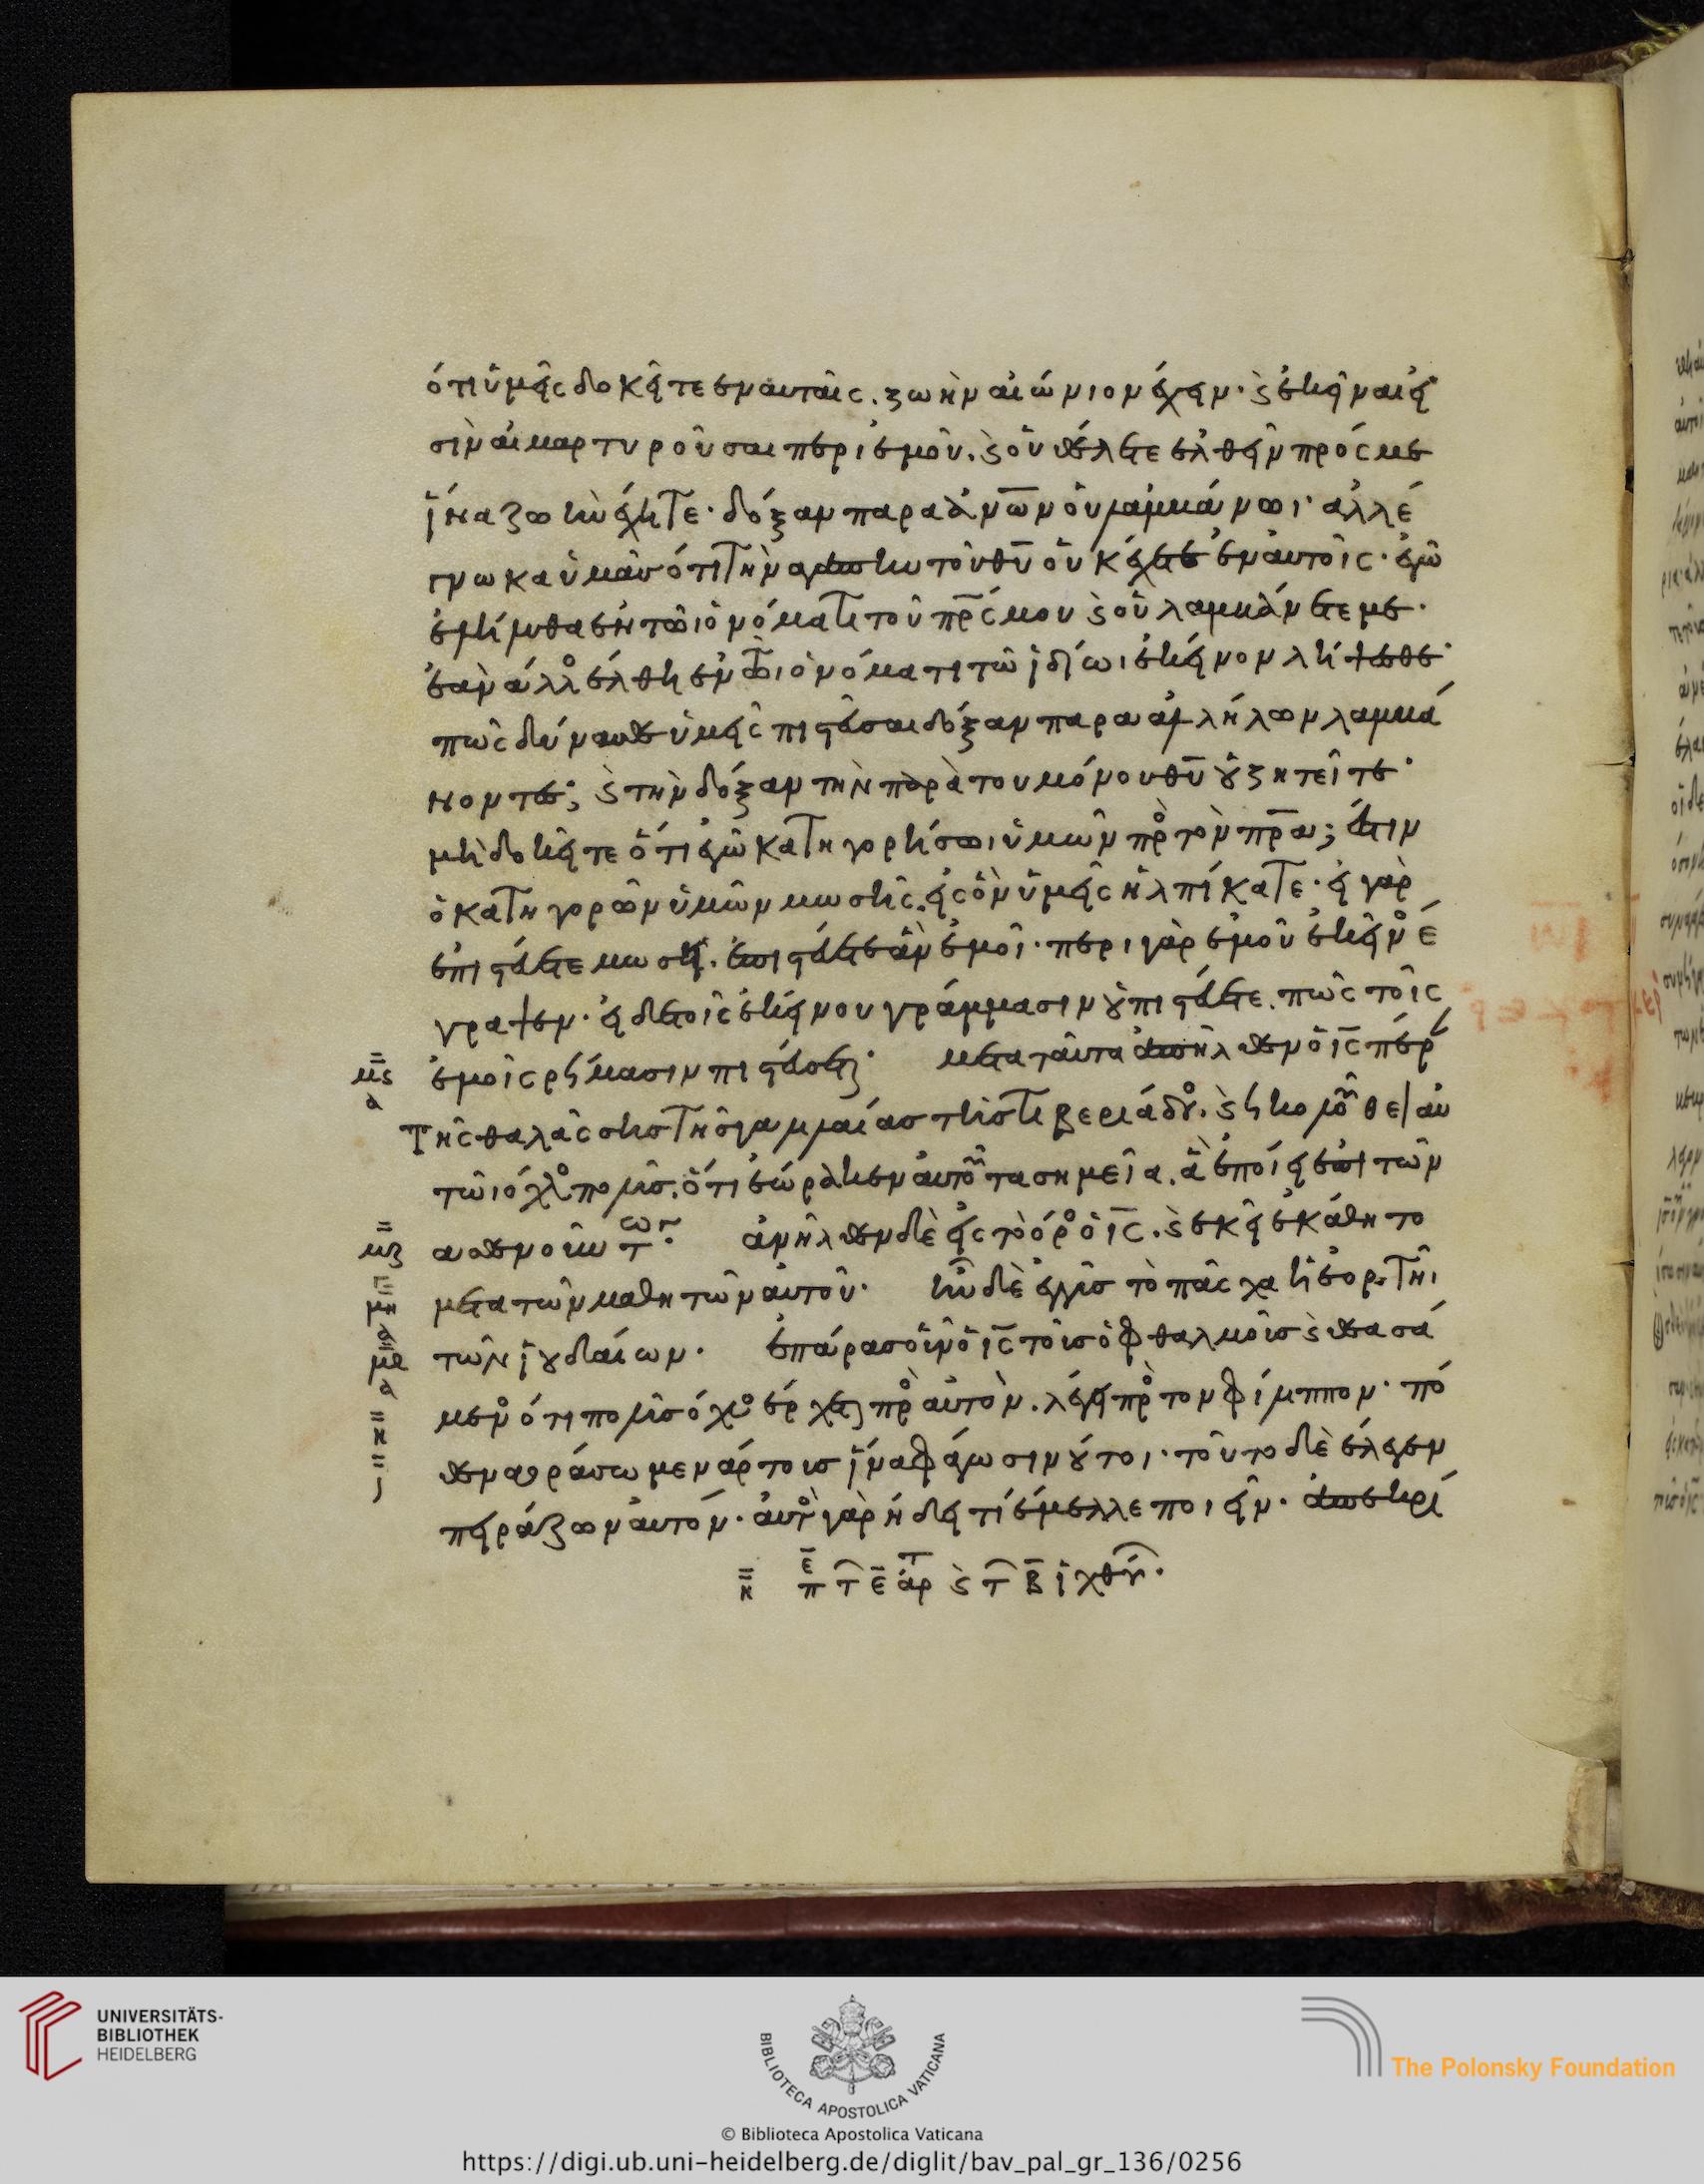 ὅτι ὑμεῖς δοκεῖτε ἐν αὐταῖς. ζωὴν αἰώνιον ἔχειν· ϗ ἐκεῖναι εἰ
σὶν αἱ μαρτυροῦσαι περὶ ἐμοῦ. ϗ οὐ θέλετε ἐλθεῖν πρός με
ἵνα ζωὴν ἔχητε· δόξαν παρὰ ἀν̅ω̅ν οὐ λαμβάνωι· ἀλλ έ
γνωκα ὑμᾶς ὅτι τὴν ἀγάπην τοῦ θ̅υ̅ οὐκ ἔχετε ἐν ἑαυτοῖς· ἐγὼ
ἐλήλυθα ἐν τῶι ὀνόματι τοῦ π̅ρ̅ς μου ϗ οὐ λαμβάνετέ με·
ἐὰν ἄλλος ἔλθη ἐν τῶι ὀνόματι τῶ ἰδίωι ἐκεῖνον λήψεσθε·
πῶς δύνασθε ὑμεῖς πιστεῦσαι δόξαν παρὰ ἀλλήλων λαμβά
νοντες; ϗ τὴν δόξαν τὴν παρὰ τοῦ μόνου θ̅υ̅ οὐ ζητεῖτε·
μὴ δοκεῖτε ὅτι ἐγὼ κατηγορήσωι ὑμῶν πρὸς τὸν π̅ρ̅α; ἔστιν
ὁ κατηγορῶν ὑμῶν μωσῆς. εἰς ὃν ὑμεῖς ἠλπίκατε· εἰ γὰρ
ἐπιστεύετε μωσῆ. ἐπιστεύετε ἂν ἐμοί· περὶ γὰρ ἐμοῦ ἐκεῖνος έ
γραψεν· εἰ δὲ τοῖς ἐκείνου γράμμασιν οὐ πιστεύετε. πῶς τοῖς
μ̅ϛ̅ ἐμοῖς ρήμασιν πιστεύσετε· μετὰ ταῦτα ἀπῆλθεν ὁ ι̅ς̅ πέρ
α
τῆς θαλάσσης τῆς γαλιλαίας τῆς τιβεριάδος. ϗ ἠκολούθει αὐ
τῶι ὄχλος πολύς. ὅτι ἑώρων αὐτοῦ τὰ σημεῖα. ἃ ἐποίει ἐπὶ τῶν
μ̅ζ̅ ἀσθενούντων· ἀνῆλθεν δὲ εἰς τὸ ὄρος ὁ ι̅ς̅. ϗ ἐκεῖ ἐκάθητο
μ̅η̅ μετὰ τῶν μαθητῶν αὐτοῦ· ἦν δὲ ἐγγὺς τὸ πάσχα ἡ ἑορτὴ
α
μ̅θ̅ τῶν ἰουδαίων· ἐπάρας οὖν ὁ ι̅ς̅ τοὺς ὀφθαλμοὺς ϗ θεασά
α
μενος ὅτι πολὺς ὄχλος ἔρχεται πρὸς αὐτὸν. λέγει πρὸς τὸν φίλιππον· πό
η̅
θεν ἀγοράσωμεν ἄρτους ἵνα φάγωσιν οὗτοι· τοῦτο δὲ ἔλεγεν
πειράζων αὐτόν· αὐτὸς γὰρ ἤδει τί ἔμελλε ποιεῖν· ἀπεκρί
η̅ π τ ε̅ ἀρτ ϗ τ β̅ ἰχθύ·
UNIVERSITÄTS-
BIBLIOTHEK
HEIDELBERG
BIBLIOTECA APOSTOLICA VATICANA
The Polonsky Foundation
© Biblioteca Apostolica Vaticana
https://digi.ub.uni-heidelberg.de/diglit/bav_pal_gr_136/0256